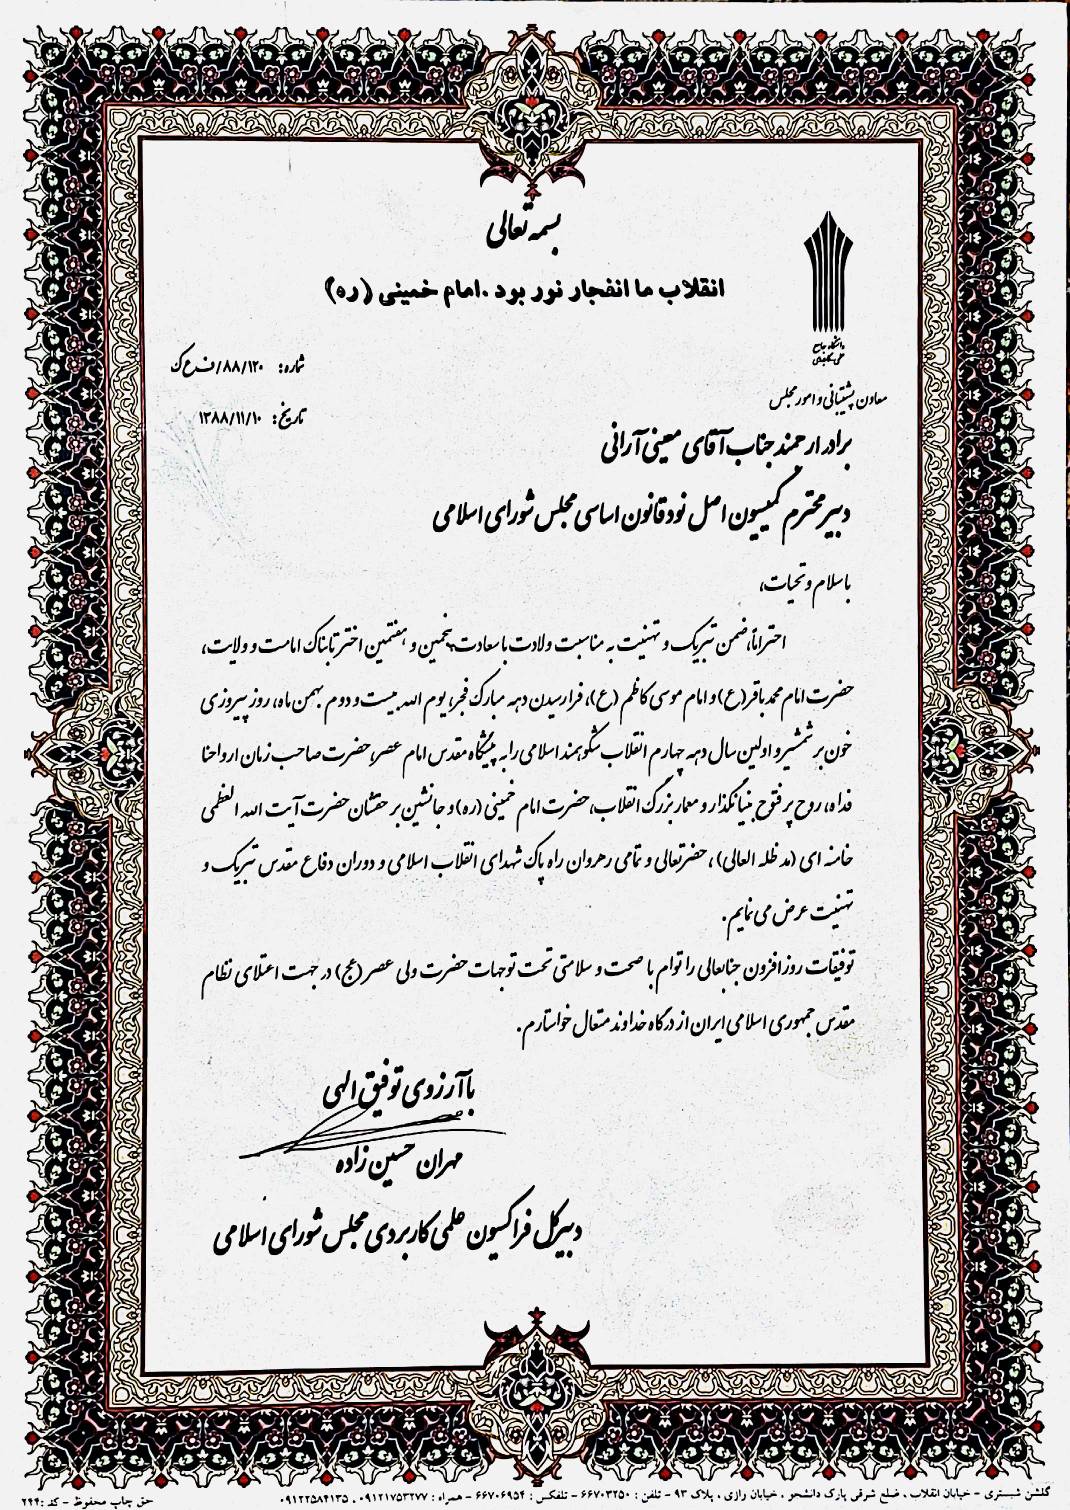 بسمه تعالی
انقلاب ما انفجار نور بود .امام خمینی (ره)
دانشگاه جامع
علمی-کاربردی
معاون پشتیبانی و امور مجلس
شماره: ۸۸/۱۲۰/ف ع ک
تاریخ: ۱۳۸۸/۱۱/۱۰
برادر ارجمند جناب آقای معینی آرانی
دبیر محترم کمیسیون اصل نود قانون اساسی مجلس شورای اسلامی
باسلام و تحیات،
احتراماً، ضمن تبریک و تهنیت به مناسبت ولادت با سعادت پنجمین و هفتمین اختر تابناک امامت و ولایت،
حضرت امام محمد باقر (ع) و امام موسی کاظم (ع)، فرارسیدن دهه مبارک فجر، یوم الله بیست و دوم بهمن ماه، روز پیروزی
خون بر شمشیر و اولین سال دهه چهارم انقلاب شکوهمند اسلامی را به پیشگاه مقدس امام عصر، حضرت صاحب زمان ارواحنا
فداه، روح پرفتوح بنیانگذار و معمار بزرگ انقلاب، حضرت امام خمینی (ره) و جانشین برحقشان حضرت آیت الله العظمی
خامنه ای (مد ظله العالی) ، حضرتعالی و تمامی رهروان راه پاک شهدای انقلاب اسلامی و دوران دفاع مقدس تبریک و
تهنیت عرض می نمایم.
توفیقات روزافزون جنابعالی را توام با صحت و سلامتی تحت توجهات حضرت ولی عصر (عج) در جهت اعتلای نظام
مقدس جمهوری اسلامی ایران از درگاه خداوند متعال خواستارم.
با آرزوی توفیق الهی
مهران حسین زاده
دبیرکل فراکسیون علمی کاربردی مجلس شورای اسلامی
گلشن شبستری - خیابان انقلاب ، ضلع شرقی پارک دانشجو ، خیابان رازی ، پلاک ۹۳ - تلفن : ۶۶۷۰۳۲۵۰ - تلفکس : ۶۶۷۰۶۹۵۴ - همراه : ۰۹۱۲۱۷۵۳۲۷۷ ، ۰۹۱۲۲۵۸۴۱۳۵ حق چاپ محفوظ - کد :۲۴۴